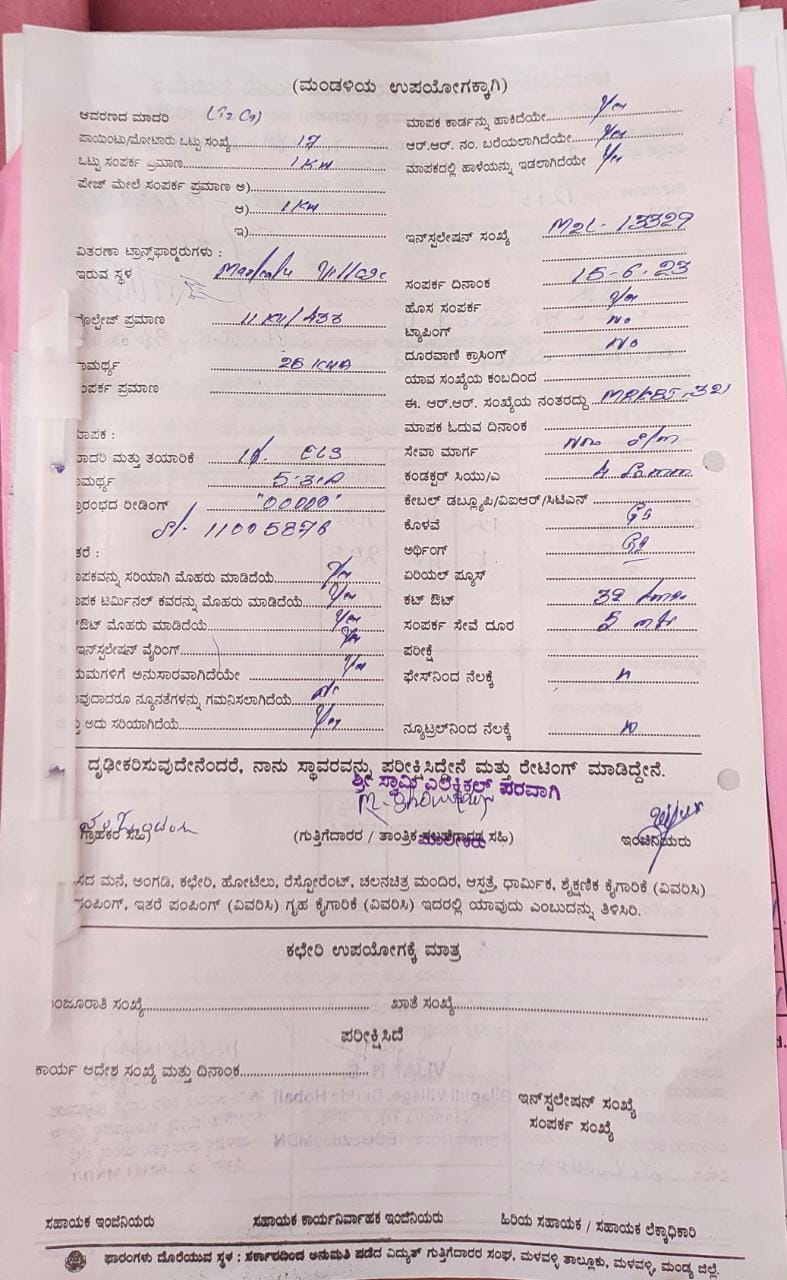 (ಮಂಡಳಿಯ ಉಪಯೋಗಕ್ಕಾಗಿ)
ಆವರಣದ ಮಾದರಿ
ಪಾಯಿಂಟು/ಮೋಟಾರು ಒಟ್ಟು ಸಂಖ್ಯೆ 17
ಒಟ್ಟು ಸಂಪರ್ಕ ಪ್ರಮಾಣ 1 KW
ಪೇಜ್ ಮೇಲೆ ಸಂಪರ್ಕ ಪ್ರಮಾಣ ಅ)
ಆ) 1 KW
ಇ)
ವಿತರಣಾ ಟ್ರಾನ್ಸ್‌ಫಾರ್‍ಮರುಗಳು :
ಇರುವ ಸ್ಥಳ Village
ವೋಲ್ಟೇಜ್ ಪ್ರಮಾಣ 11 KV/433
ಾಮರ್ಥ್ಯ 25 KVA
ಂಪರ್ಕ ಪ್ರಮಾಣ
ಾಪಕ :
ಾದರಿ ಮತ್ತು ತಯಾರಿಕೆ
ಾಮರ್ಥ್ಯ 5-30A
್ರಾರಂಭದ ರೀಡಿಂಗ್ "00000"
Sl. 11005876
ತರೆ :
ಾಪಕವನ್ನು ಸರಿಯಾಗಿ ಮೊಹರು ಮಾಡಿದೆಯೆ Yes
ಾಪಕ ಟರ್ಮಿನಲ್ ಕವರನ್ನು ಮೊಹರು ಮಾಡಿದೆಯೆ Yes
ಔಟ್ ಮೊಹರು ಮಾಡಿದೆಯೆ Yes
ಇನ್‌ಸ್ಟಲೇಷನ್ ವೈರಿಂಗ್ Yes
ಯಮಗಳಿಗೆ ಅನುಸಾರವಾಗಿದೆಯೇ Yes
ವುದಾದರೂ ನ್ಯೂನತೆಗಳನ್ನು ಗಮನಿಸಲಾಗಿದೆಯೆ No
ಅದು ಸರಿಯಾಗಿದೆಯೆ Yes
ಮಾಪಕ ಕಾರ್ಡನ್ನು ಹಾಕಿದೆಯೇ Yes
ಆರ್.ಆರ್. ನಂ. ಬರೆಯಲಾಗಿದೆಯೇ Yes
ಮಾಪಕದಲ್ಲಿ ಹಾಳೆಯನ್ನು ಇಡಲಾಗಿದೆಯೇ Yes
ಇನ್‌ಸ್ಟಲೇಷನ್ ಸಂಖ್ಯೆ M2L-13329
ಸಂಪರ್ಕ ದಿನಾಂಕ 15-6-23
ಹೊಸ ಸಂಪರ್ಕ Yes
ಟ್ಯಾಪಿಂಗ್ No
ದೂರವಾಣಿ ಕ್ರಾಸಿಂಗ್ No
ಯಾವ ಸಂಖ್ಯೆಯ ಕಂಬದಿಂದ
ಈ. ಆರ್.ಆರ್. ಸಂಖ್ಯೆಯ ನಂತರದ್ದು
ಮಾಪಕ ಓದುವ ದಿನಾಂಕ
ಸೇವಾ ಮಾರ್ಗ
ಕಂಡಕ್ಟರ್ ಸಿಯು/ಎ
ಕೇಬಲ್ ಡಬ್ಲ್ಯೂಪಿ/ವಿಐಆರ್/ಸಿಟಿಎನ್
ಕೊಳವೆ GI
ಅರ್ಥಿಂಗ್ GI
ಏರಿಯಲ್ ಫ್ಯೂಸ್
ಕಟ್ ಔಟ್ 32
ಸಂಪರ್ಕ ಸೇವೆ ದೂರ 5 mtr
ಪರೀಕ್ಷೆ
ಫೇಸ್‌ನಿಂದ ನೆಲಕ್ಕೆ
ನ್ಯೂಟ್ರಲ್‌ನಿಂದ ನೆಲಕ್ಕೆ
ದೃಢೀಕರಿಸುವುದೇನೆಂದರೆ, ನಾನು ಸ್ಥಾವರವನ್ನು ಪರೀಕ್ಷಿಸಿದ್ದೇನೆ ಮತ್ತು ರೇಟಿಂಗ್ ಮಾಡಿದ್ದೇನೆ.
ಶ್ರೀ ಸ್ವಾಮಿ ಎಲೆಕ್ಟ್ರಿಕಲ್ ಪರವಾಗಿ
ಗ್ರಾಹಕರ ಸಹಿ) (ಗುತ್ತಿಗೆದಾರರ / ತಾಂತ್ರಿಕ ಸಲಹೆಗಾರರ ಸಹಿ) ಇಂಜಿನಿಯರು
ಮಾಲೀಕರು
ಸದ ಮನೆ, ಅಂಗಡಿ, ಕಛೇರಿ, ಹೋಟೆಲು, ರೆಸ್ಟೋರೆಂಟ್, ಚಲನಚಿತ್ರ ಮಂದಿರ, ಆಸ್ಪತ್ರೆ, ಧಾರ್ಮಿಕ, ಶೈಕ್ಷಣಿಕ ಕೈಗಾರಿಕೆ (ವಿವರಿಸಿ)
ಪಂಪಿಂಗ್, ಇತರೆ ಪಂಪಿಂಗ್ (ವಿವರಿಸಿ) ಗೃಹ ಕೈಗಾರಿಕೆ (ವಿವರಿಸಿ) ಇದರಲ್ಲಿ ಯಾವುದು ಎಂಬುದನ್ನು ತಿಳಿಸಿರಿ.
ಕಛೇರಿ ಉಪಯೋಗಕ್ಕೆ ಮಾತ್ರ
ಂಜೂರಾತಿ ಸಂಖ್ಯೆ ಖಾತೆ ಸಂಖ್ಯೆ
ಪರೀಕ್ಷಿಸಿದೆ
ಕಾರ್ಯ ಆದೇಶ ಸಂಖ್ಯೆ ಮತ್ತು ದಿನಾಂಕ
ಇನ್‌ಸ್ಟಲೇಷನ್ ಸಂಖ್ಯೆ
ಸಂಪರ್ಕ ಸಂಖ್ಯೆ
ಸಹಾಯಕ ಇಂಜಿನಿಯರು ಸಹಾಯಕ ಕಾರ್ಯನಿರ್ವಾಹಕ ಇಂಜಿನಿಯರು ಹಿರಿಯ ಸಹಾಯಕ / ಸಹಾಯಕ ಲೆಕ್ಕಾಧಿಕಾರಿ
ಫಾರಂಗಳು ದೊರೆಯುವ ಸ್ಥಳ : ಸರ್ಕಾರದಿಂದ ಅನುಮತಿ ಪಡೆದ ವಿದ್ಯುತ್ ಗುತ್ತಿಗೆದಾರರ ಸಂಘ, ಮಳವಳ್ಳಿ ತಾಲ್ಲೂಕು, ಮಳವಳ್ಳಿ, ಮಂಡ್ಯ ಜಿಲ್ಲೆ.